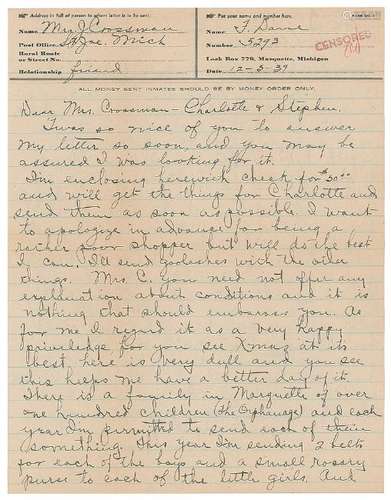 Address in full of person to whom letter is to be sent.
Put your name and number here.
Name Mrs J. Crossman
Name F. Dane
Post Office St Joe. Mich
Number 5293
CENSORED
Rural Route
or Street No.
Lock Box 779, Marquette, Michigan
Relationship friend
Date 12-5-37
ALL MONEY SENT INMATES SHOULD BE BY MONEY ORDER ONLY.
Dear Mrs. Crossman - Charlotte & Stephen.
Twas so nice of you to answer
my letter so soon, and you may be
assured I was looking for it.
I'm enclosing herewith check for $50.00
and will get the things for Charlotte and
send them as soon as possible. I want
to apologize in advance for being a
rather poor shopper but will do the best
I can. I'll send goloshes with the other
things. Mrs. C. you need not offer any
explanation about conditions and it is
nothing that should embarass you. As
for me I regard it as a very happy
priviledge for you see Xmas at its
best, here is very dull and you see
this helps me have a better day of it.
There is a family in Marquette of over
one hundred children (The Orphanage) and each
year I'm permitted to send each of them
something. This year I'm sending 2 belts
for each of the boys and a small rosary
purse to each of the little girls. And